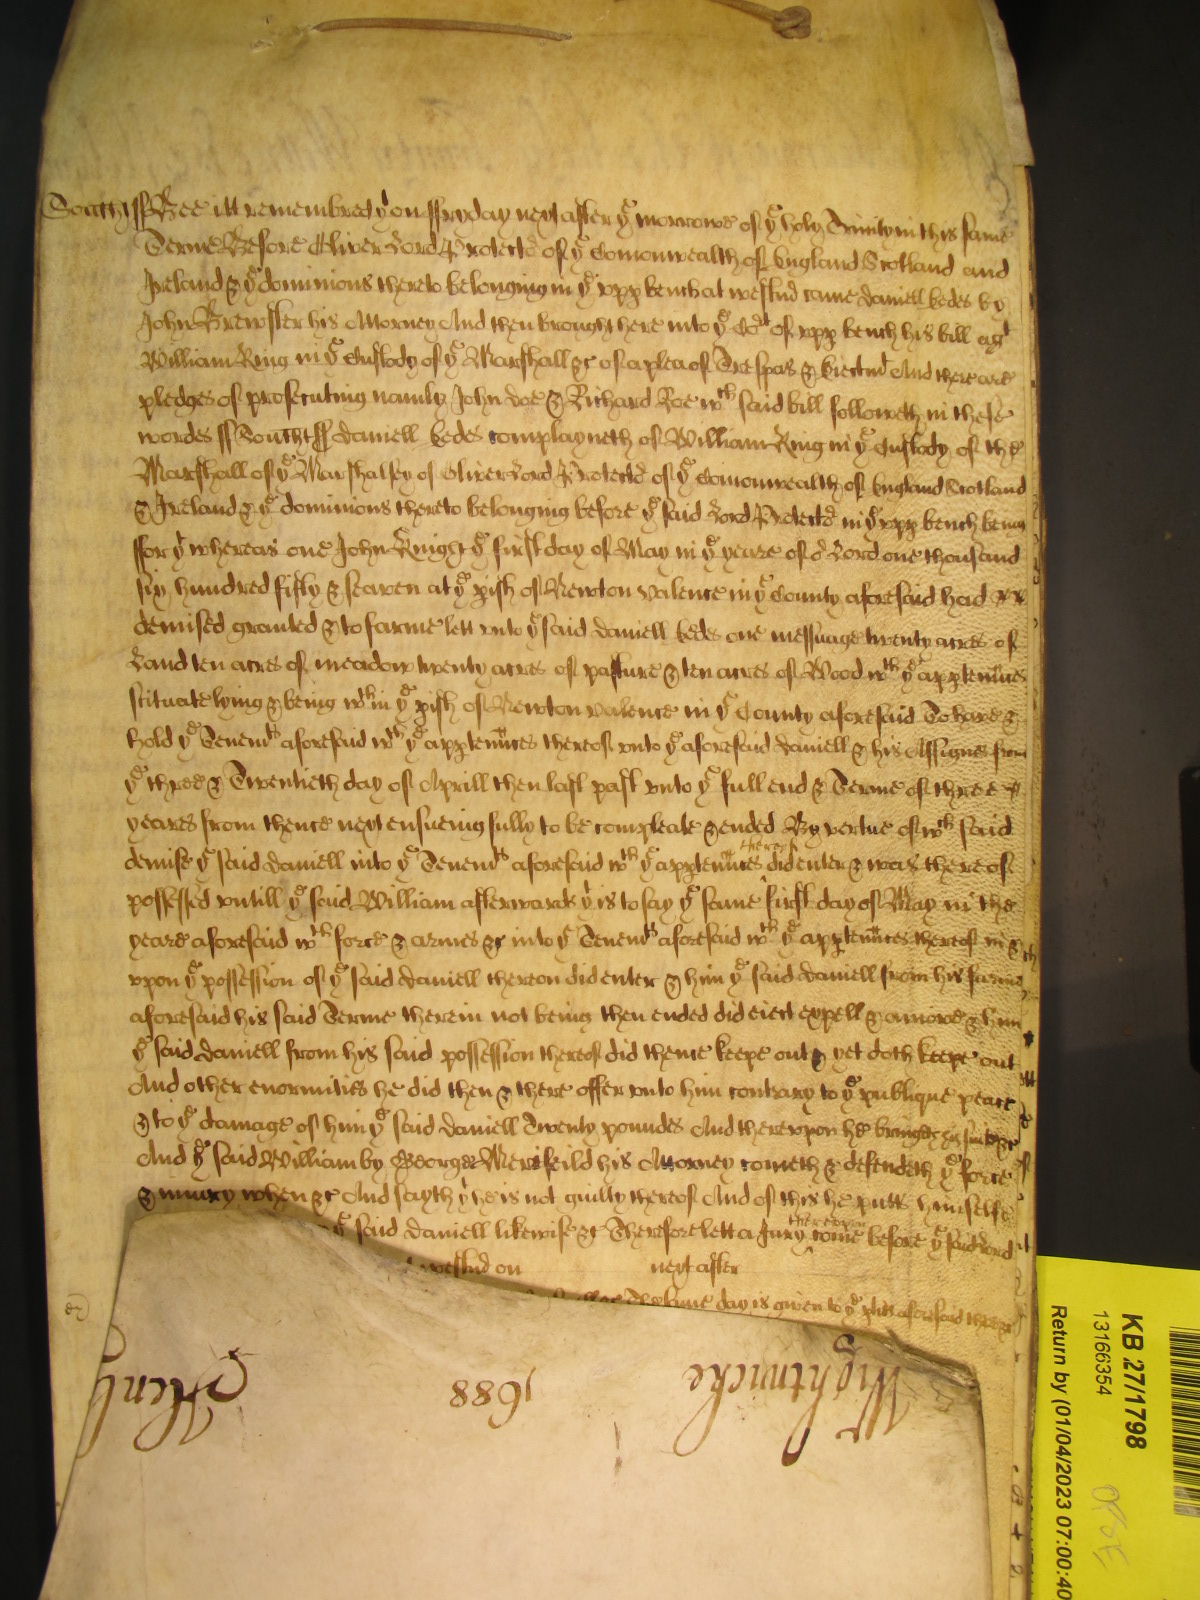 Southt ss Bee itt remembred yt on ffryday next after ye morrowe of ye holy Trinity in this same
Terme Before Oliver Lord Protector of ye Comonwealth of England Scotland and
Ireland & ye dominions thereto belonging in ye upp bench at westmr came Daniell Eedes by
John Brewster his Attorney And then brought here into ye Cort of upp bench his bill agt
William King in ye Custody of ye Marshall &c of a plea of Trespas & Eiectmt And there are
pledges of prosecuting namely John Doe & Richard Roe wch said bill followeth in these
wordes ss Southt ss Daniell Eedes complayneth of William King in ye Custody of the
Marshall of ye Marshalsey of Oliver Lord Protector of ye Comonwealth of England Scotland
& Ireland & ye dominions thereto belonging before ye said Lord Protector in ye upp bench being
ffor yt whereas one John Knight ye first day of May in ye yeare of or Lord one thousand
six hundred fifty & seaven at ye pish of Newton Valence in ye County aforesaid had
demised granted & to farme lett unto ye said Daniell Eedes one messuage twenty acres of
Land ten acres of meadow twenty acres of pasture & ten acres of Wood wth ye apptennces
scituate lying & being wthin ye pish of Newton Valence in ye County aforesaid To have &
hold ye Tenemts aforesaid wth ye apptennces thereof unto ye aforesaid Daniell & his Assignes from
ye three & Twentieth day of Aprill then last past unto ye full end & Terme of three
yeares from thence next ensueing fully to be compleate & ended By vertue of wch said
demise ye said Daniell into ye Tenemts aforesaid wth ye apptennces thereof did enter & was thereof
possessed untill ye said William afterwards yt is to say ye same first day of May in the
yeare aforesaid wth force & armes &c into ye Tenemts aforesaid wth ye apptennces thereof in &
upon ye possession of ye said Daniell thereon did enter & him ye said Daniell from his farme
aforesaid his said Terme therein not being then ended did eiect expell & amove & him
ye said Daniell from his said possession thereof did thence keepe out & yet doth keepe out
And other enormities he did then & there offer unto him contrary to ye publique peace
& to ye damage of him ye said Daniell Twenty poundes And thereupon he bringeth his suite &c
And ye said William by George Merifeild his Attorney cometh & defendeth ye force
& iniury when &c And sayth yt he is not guilty thereof And of this he putts himselfe
ye said Daniell likewise &c Therefore lett a Jury thereupon come before ye said Lord
westmr on next after
same day is given to ye pties aforesaid there &c
Wightwicke 1688 Henly
KB 27/1798
13166354
Return by (01/04/2023 07:00:40